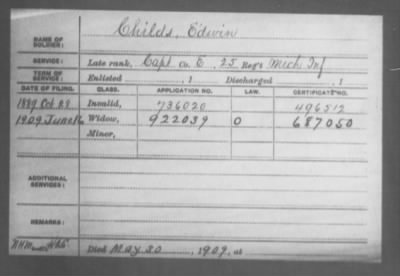 NAME OF SOLDIER: Childs, Edwin
SERVICE: Late rank, Capt Co. E, 25 Reg't Mich. Inf
TERM OF SERVICE: Enlisted , 1 Discharged , 1
DATE OF FILING. CLASS. APPLICATION NO. LAW. CERTIFICATE NO.
1889 Oct 29 Invalid, 736020 496512
1909 June 16 Widow, 922039 O 687050
Minor,
ADDITIONAL SERVICES:
REMARKS:
Died May 20, 1909, at